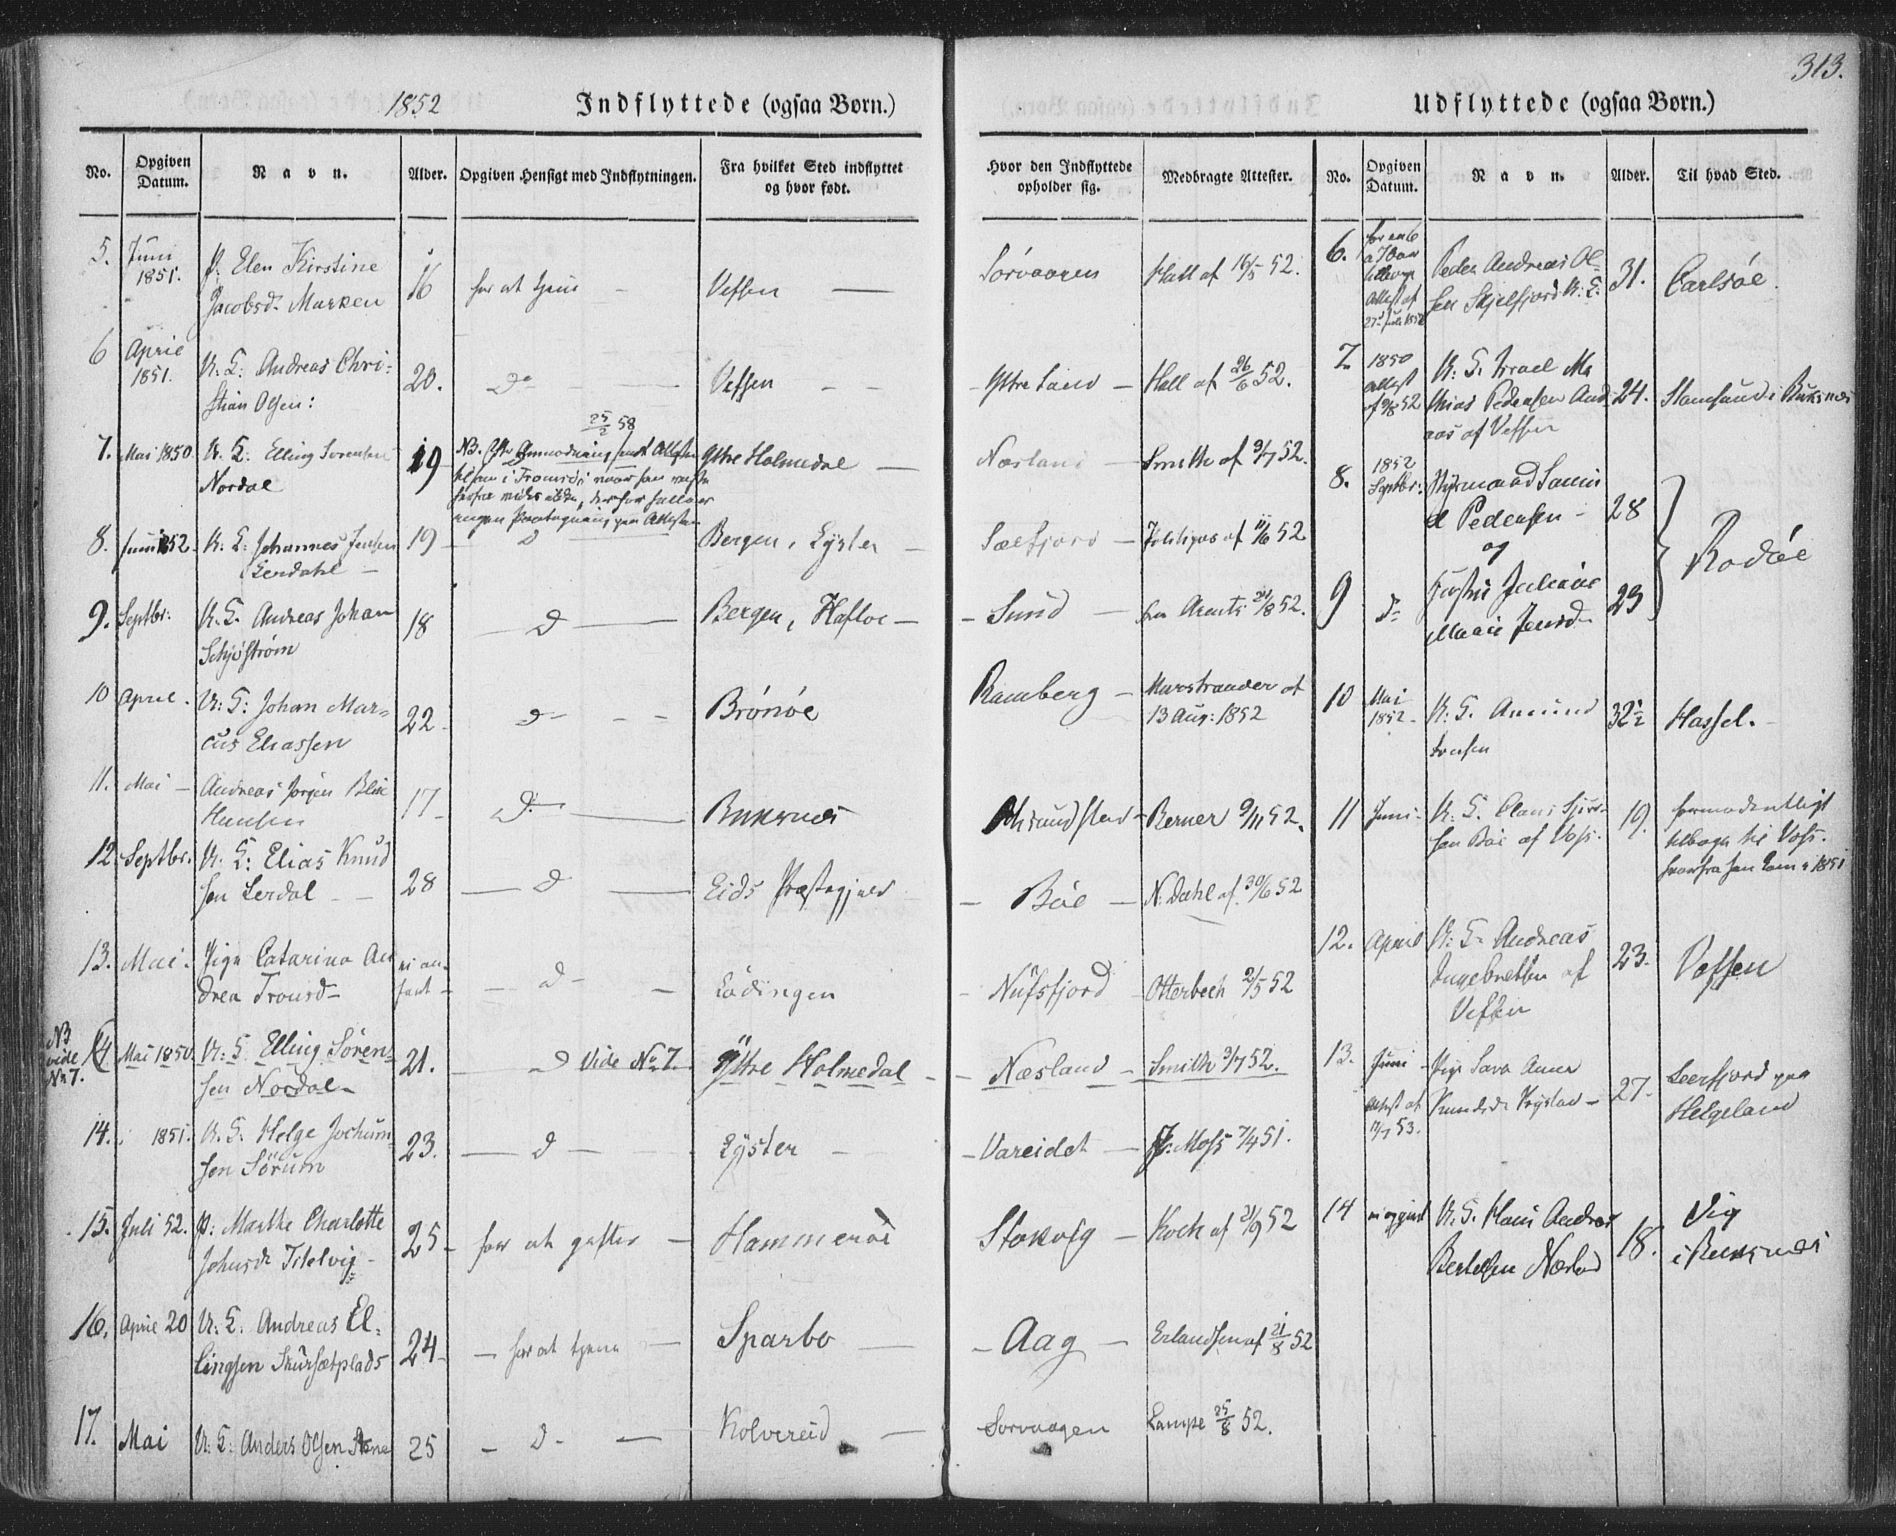 313.
1852
Indflyttede (ogsaa Børn.)
Udflyttede (ogsaa Børn.)
No.
Opgiven Datum.
Navn.
Alder.
Opgiven Hensigt med Indflytningen.
Fra hvilket Sted indflyttet og hvor født.
Hvor den Indflyttede opholder sig.
Medbragte Attester.
No.
Opgiven Datum.
Navn.
Alder.
Til hvad Sted.
5. Juni 1851. P. Elen Kirstine 16 for at tjene Vefsen Sørvaagen Hall af 16/5 52.
Jacobsd. Marken
6 April 1851. U: K: Andreas Chri- 20. Do Vefsen Ystre Sand Hall af 26/6 52.
stian Olsen:
25/2 58
7. Mai 1850. U: K: Elling Sørensen 19 Ystre Holmedal Næsland Smith af 3/7 52.
Nordal
NB. Efter Anmodning sendt Attesten
8. Juni 1852. U: K: Johannes Jensen 19 D Bergen, Lyster Sælfjord 11/6 52
Lerdahl
9. Septbr: U. K. Andreas Johan 18 D Bergen, Hafloe Sund 21/8 52.
Schjøstrøm
10 April. U: K: Johan Mar- 22 D Brønøe Ramberg af
cus Eliassen 13 Aug: 1852
11. Mai Andreas Jørgen Blix 17 D. Buksnes Berner 9/11 52.
Hansen
12. Septbr. U. K: Elias Knud 28 D Eids Præstegjeld Bøe N. Dahl af 30/6 52
sen Lerdal
13. Mai. Pige Catarina An D Lødingen Nusfjord Otterbech 2/5 52
drea Tronsd
NB vide No 7.
14 Mai 1850. U: K Elling Søren- 21. D Vide No 7. Ystre Holmedal Næsland Smith 3/7 52.
sen Nordal
14. 1851. U. K. Helge Jochum- 23. D Lyster Vareidet Moss 7/4 51.
sen Sörum
15. Juli 52. P: Marthe Charlotte 25 for at giftes Hammerøe Stokvig Koch af 21/9 52
Johnsd. Titelvig
16. April 20 U. K. Andreas El- 24 for at tjene Sparbo Aag Erlandsen af 21/8 52
lingsen Skursætplads
17. Mai U: K: Anders Olsen 25 D Kolvereid Sørvaagen Lampe 25/8 52.
6. Peder Andreas Ol- 31. Carlsöe.
Attest af
sen Skjelfjord U: K:
27d Juli 1852
7. 1850 U: K. Israel Ma 24. Stamsund i Buksnes
attest thias Pedersen And
af 9/8 52 aas af Vefsen
8. 1852 Septbr: Styrmand Dani 28
el Pedersen
og
Rodöe
9 Do Juliane 23
Marie Jensd
10 Mai 1852 U: K. Amund 32½ Hassel.
11 Juni U: K. Claus 19. formodentligt
sen Bøe af Voss. tilbage til Voss.
hvorfra han kom i 1851
12. April U: K. Andreas 23. Vefsen
Ingebretsen af
Vefsen
13. Juni Pige Sara Anna 27. Leerfjord paa
Attest af 17/7 53. Knudsd. Helgeland
14 U. K. Hans Andreas 18. Vig
Bertelsen Næsland i Buksnes